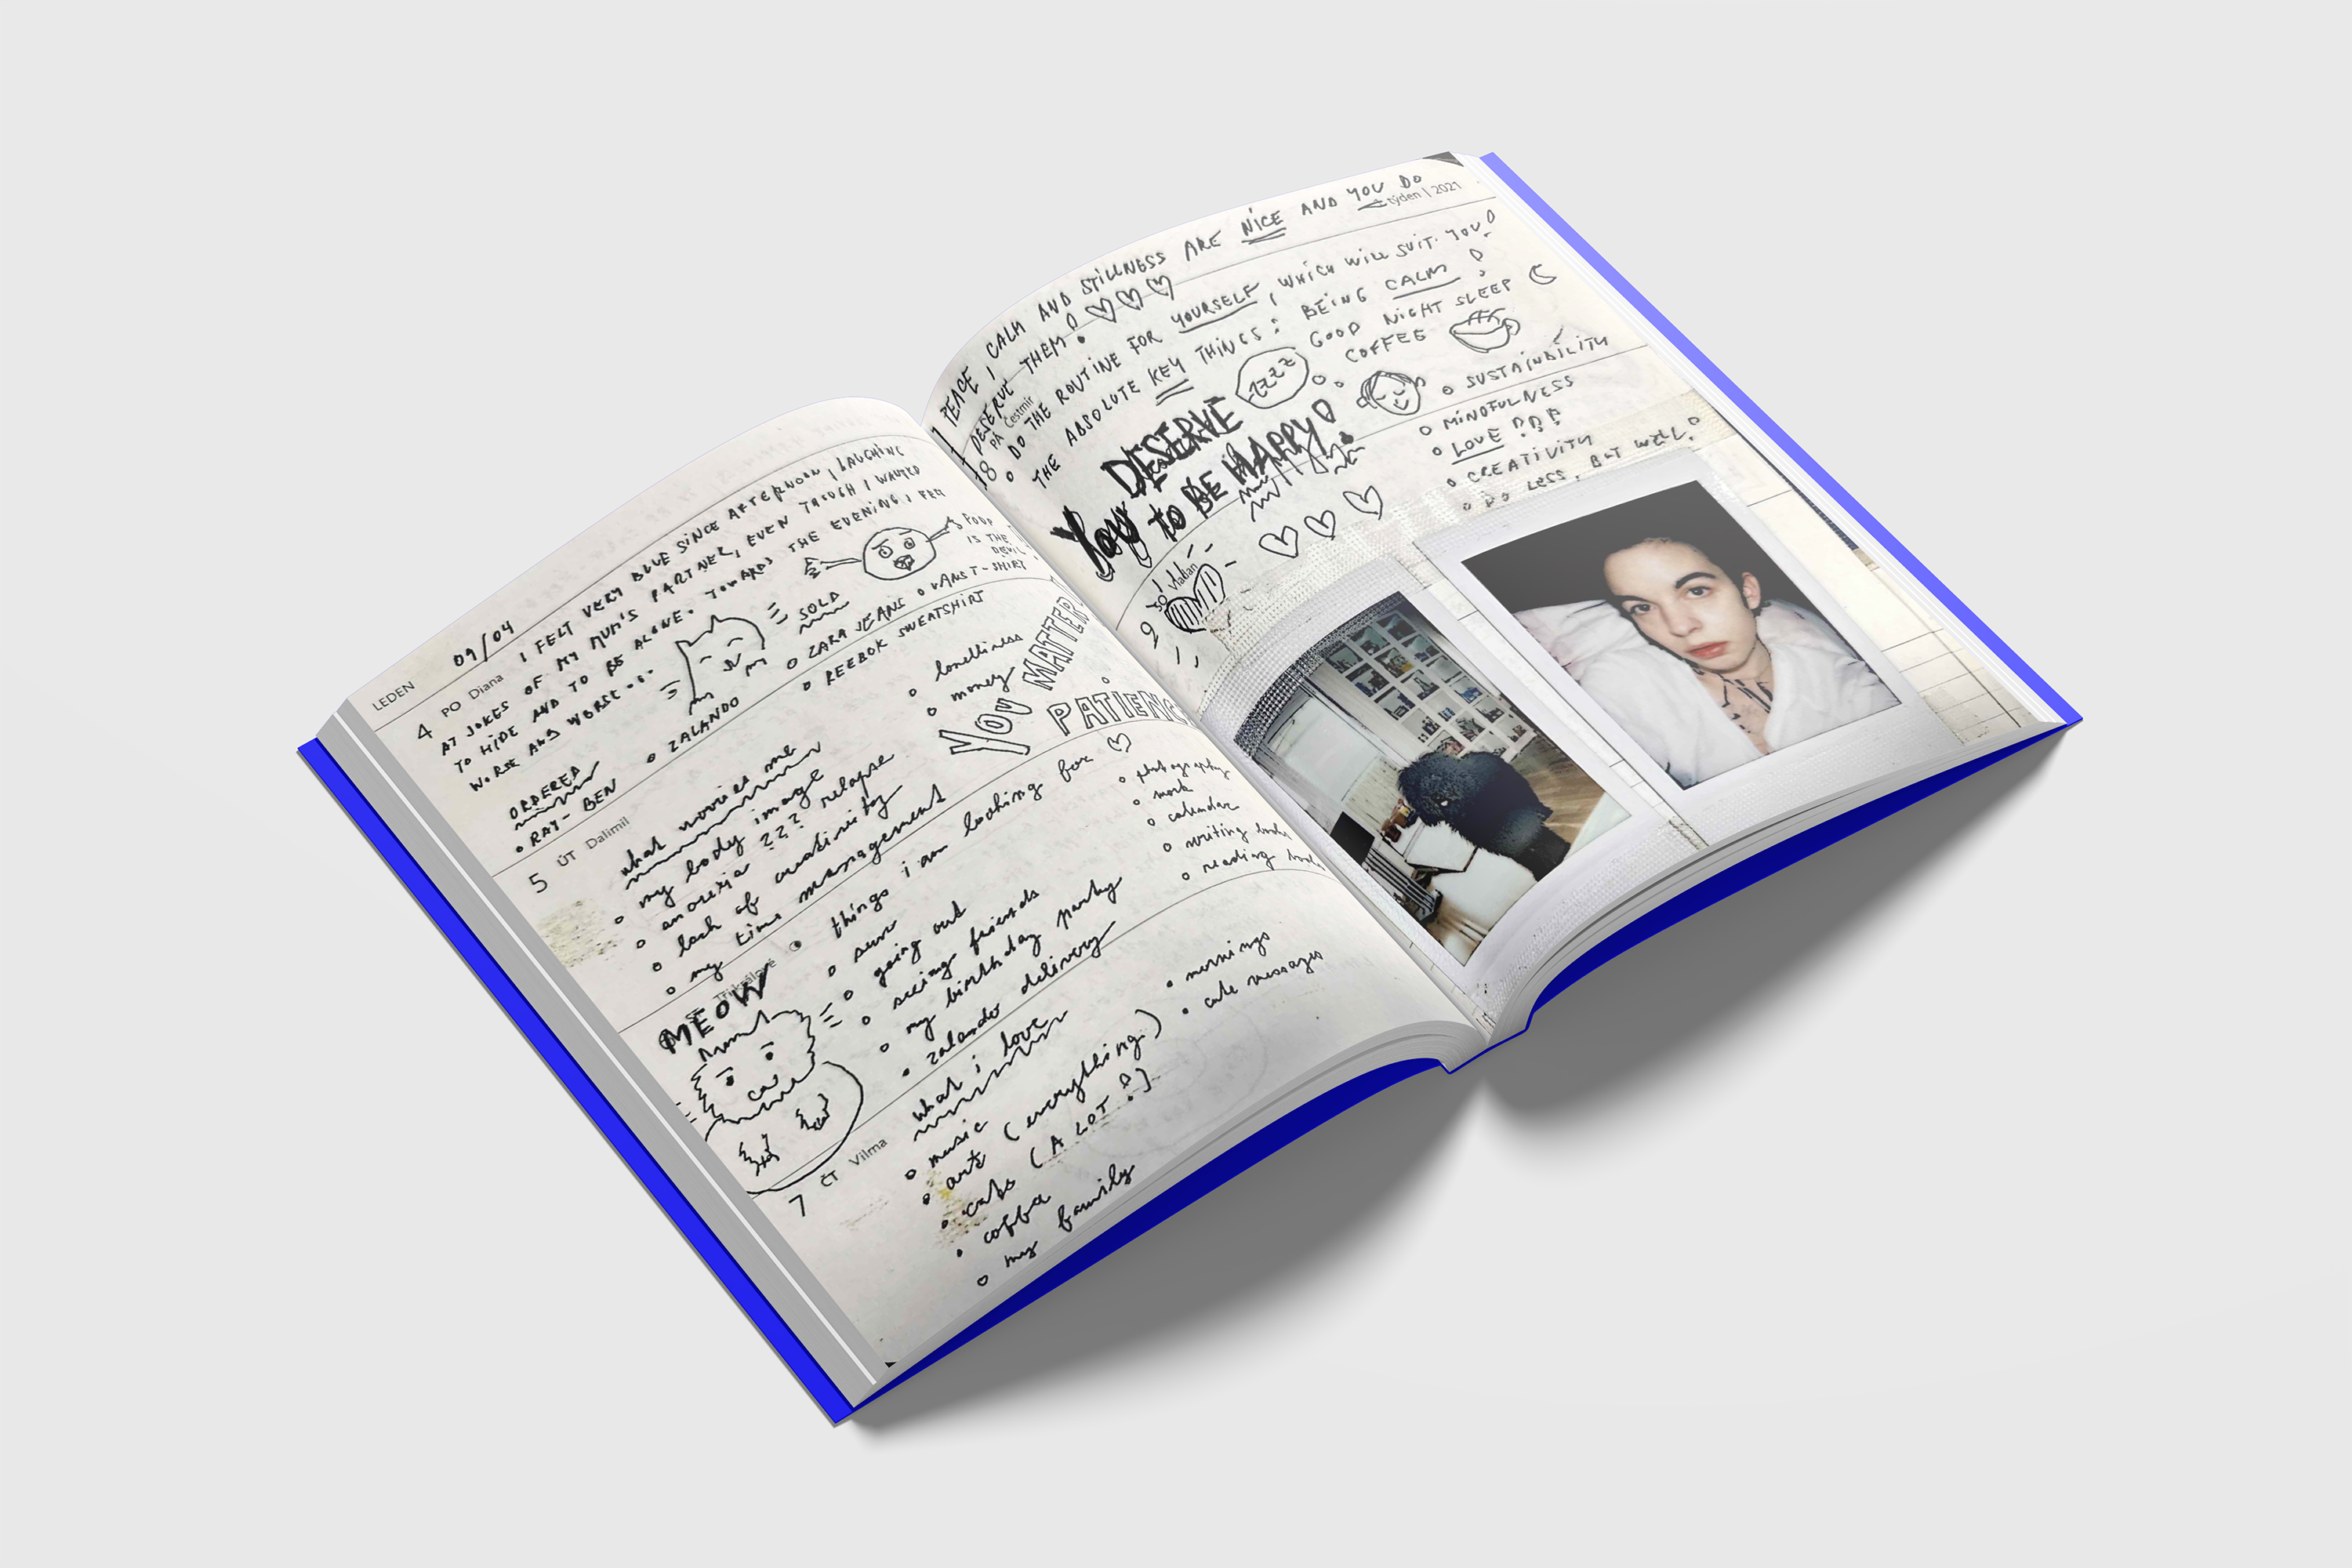 LEDEN
09/04
4 PO Diana
I FELT VERY BLUE SINCE AFTERNOON, LAUGHING
AT JOKES OF MY MUM'S PARTNER, EVEN THOUGH I WANTED
TO HIDE AND TO BE ALONE. TOWARDS THE EVENING I FELT
WORSE AND WORSE...
FOOD
IS THE
DEVIL
ORDERED
SOLD
• RAY-BEN
o ZALANDO
o ZARA JEANS o VANS T-SHIRT
o REEBOK SWEATSHIRT
5 ÚT Dalimil
what worries me
o my body image
o anorexia ??? relapse
o lack of creativity
o my time management
o lonelliness
o money
YOU MATTER
PATIENC
MEOW
things i am looking for
o sun
o going out
o seeing friends
o my birthday party
• zalando delivery
o photography
o work
o calendar
o writing
o reading
7 ČT Vilma
what i love
o music
• art (everything)
• cats (A LOT!)
• coffee
o my family
• mornings
• cute messages
týden | 2021
PEACE, CALM AND STILLNESS ARE NICE AND YOU DO
DESERVE THEM!
8 PÁ Čestmír
o DO THE ROUTINE FOR YOURSELF, WHICH WILL SUIT YOU!
THE ABSOLUTE KEY THINGS: BEING CALM!
ZZZZ
GOOD NIGHT SLEEP
COFFEE
o SUSTAINBILITY
o MINDFULNESS
o LOVE !!!
o CREATIVITY
o DO LESS, BUT WELL!
YOU DESERVE
TO BE HAPPY!
9 SO Vladan